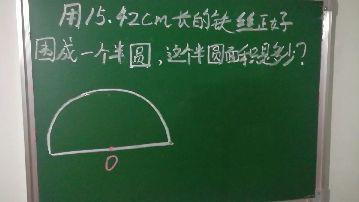 用15.42cm长的铁丝正好
围成一个半圆,这个半圆面积是多少?
O